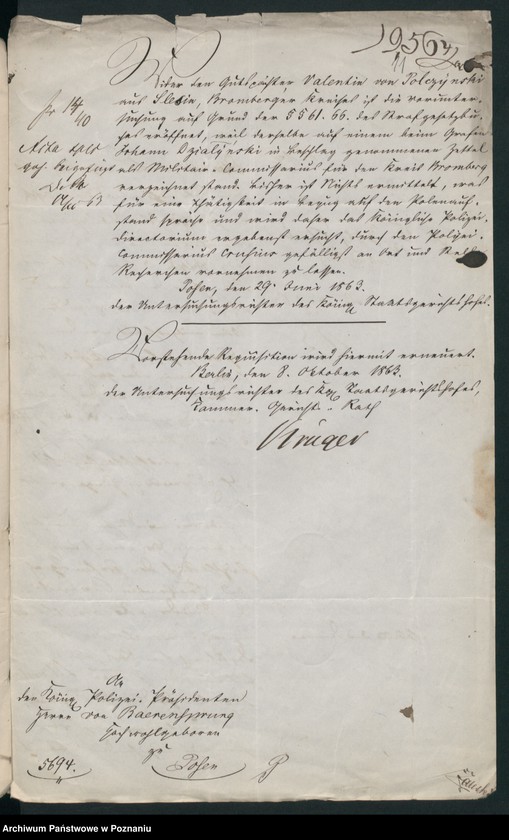 1956
Wider den Gutspächter Valentin von Polczynski
aus Slesin, Bromberger Kreises ist die Vorunter-
suchung auf Grund der §§ 61. 66. des Strafgesetzbu-
ches eröffnet, weil derselbe auf einem beim Grafen
Johann Dzialynski in Beschlag genommenen Zettel
als Militair-Commissarius für den Kreis Bromberg
verzeichnet stand. Bisher ist Nichts ermittelt, was
für eine Thätigkeit in Bezug auf den Polenauf-
stand spräche und wird daher das Königliche Polizei-
directorium ergebenst ersucht, durch den Polizei-
Commissarius gefälligst an Ort und Stelle
Recherchen vornehmen zu lassen.
Posen, den 29. Juni 1863.
Der Untersuchungsrichter des Königl. Staatsgerichtshofes.
Vorstehende Requisition wird hiermit erneuert.
Berlin, den 8. Oktober 1863.
Der Untersuchungsrichter des Kgl. Staatsgerichtshofes,
Kammer-Gerichts-Rath
Krüger
An
den Königl. Polizei-Präsidenten
Herrn von Baerensprung
Hochwohlgeboren
zu
5694. Posen
Archiwum Państwowe w Poznaniu